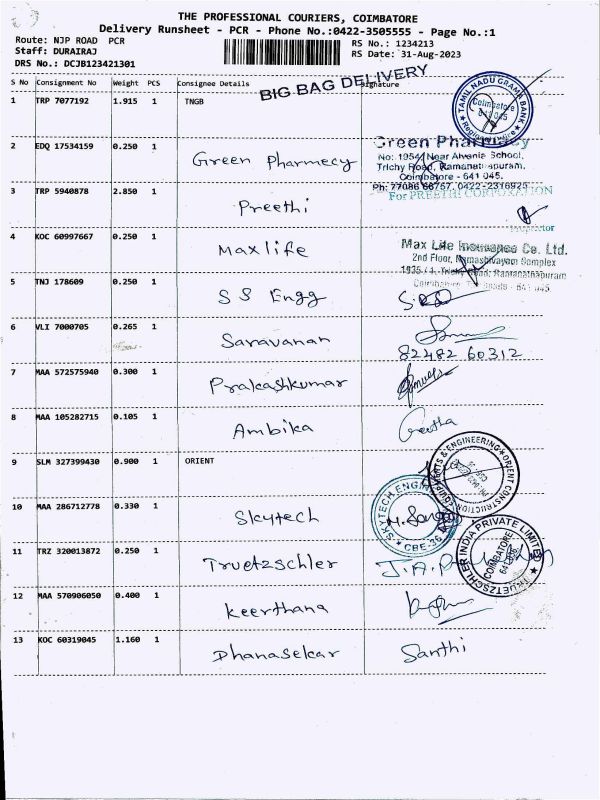 THE PROFESSIONAL COURIERS, COIMBATORE
Delivery Runsheet - PCR - Phone No.:0422-3505555 - Page No.:1
Route: NJP ROAD PCR
RS No.: 1234213
Staff: DURAIRAJ
RS Date: 31-Aug-2023
DRS No.: DCJB123421301
BIG BAG DELIVERY
S No Consignment No Weight PCS Consignee Details Signature
1 TRP 7077192 1.915 1 TNGB
TAMIL NADU GRAMA BANK
Coimbatore
641 045
2 EDQ 17534159 0.250 1 Green Pharmecy
Green Pharmacy
No: 1954, Near Alvernia School,
Trichy Road, Ramanathapuram,
Coimbatore - 641 045.
Ph: 77086 66767, 0422-2316925
3 TRP 5940878 2.850 1 Preethi
For PREETHI CORPORATION
Proprietor
4 KOC 60997667 0.250 1 Maxlife
Max Life Insurance Co. Ltd.
2nd Floor, Namashivayam Complex
Trichy Road, Ramanathapuram
Coimbatore, 641 045
5 TNJ 178609 0.250 1 S S Engg
6 VLI 7000705 0.265 1 Saravanan
82482 60312
7 MAA 572575940 0.300 1 Prakashkumar
8 MAA 105282715 0.105 1 Ambika Geetha
9 SLM 327399430 0.900 1 ORIENT
ORIENT CONSTRUCTION EQUIPMENTS & ENGINEERING
10 MAA 286712778 0.330 1 Skytech
SKYTECH ENGIN
CBE-36
11 TRZ 320013872 0.250 1 Truetzschler J.A.P
TRUETZSCHLER INDIA PRIVATE LIMITED
COIMBATORE
12 MAA 570906050 0.400 1 Keerthana
13 KOC 60319045 1.160 1 Dhanasekar Santhi